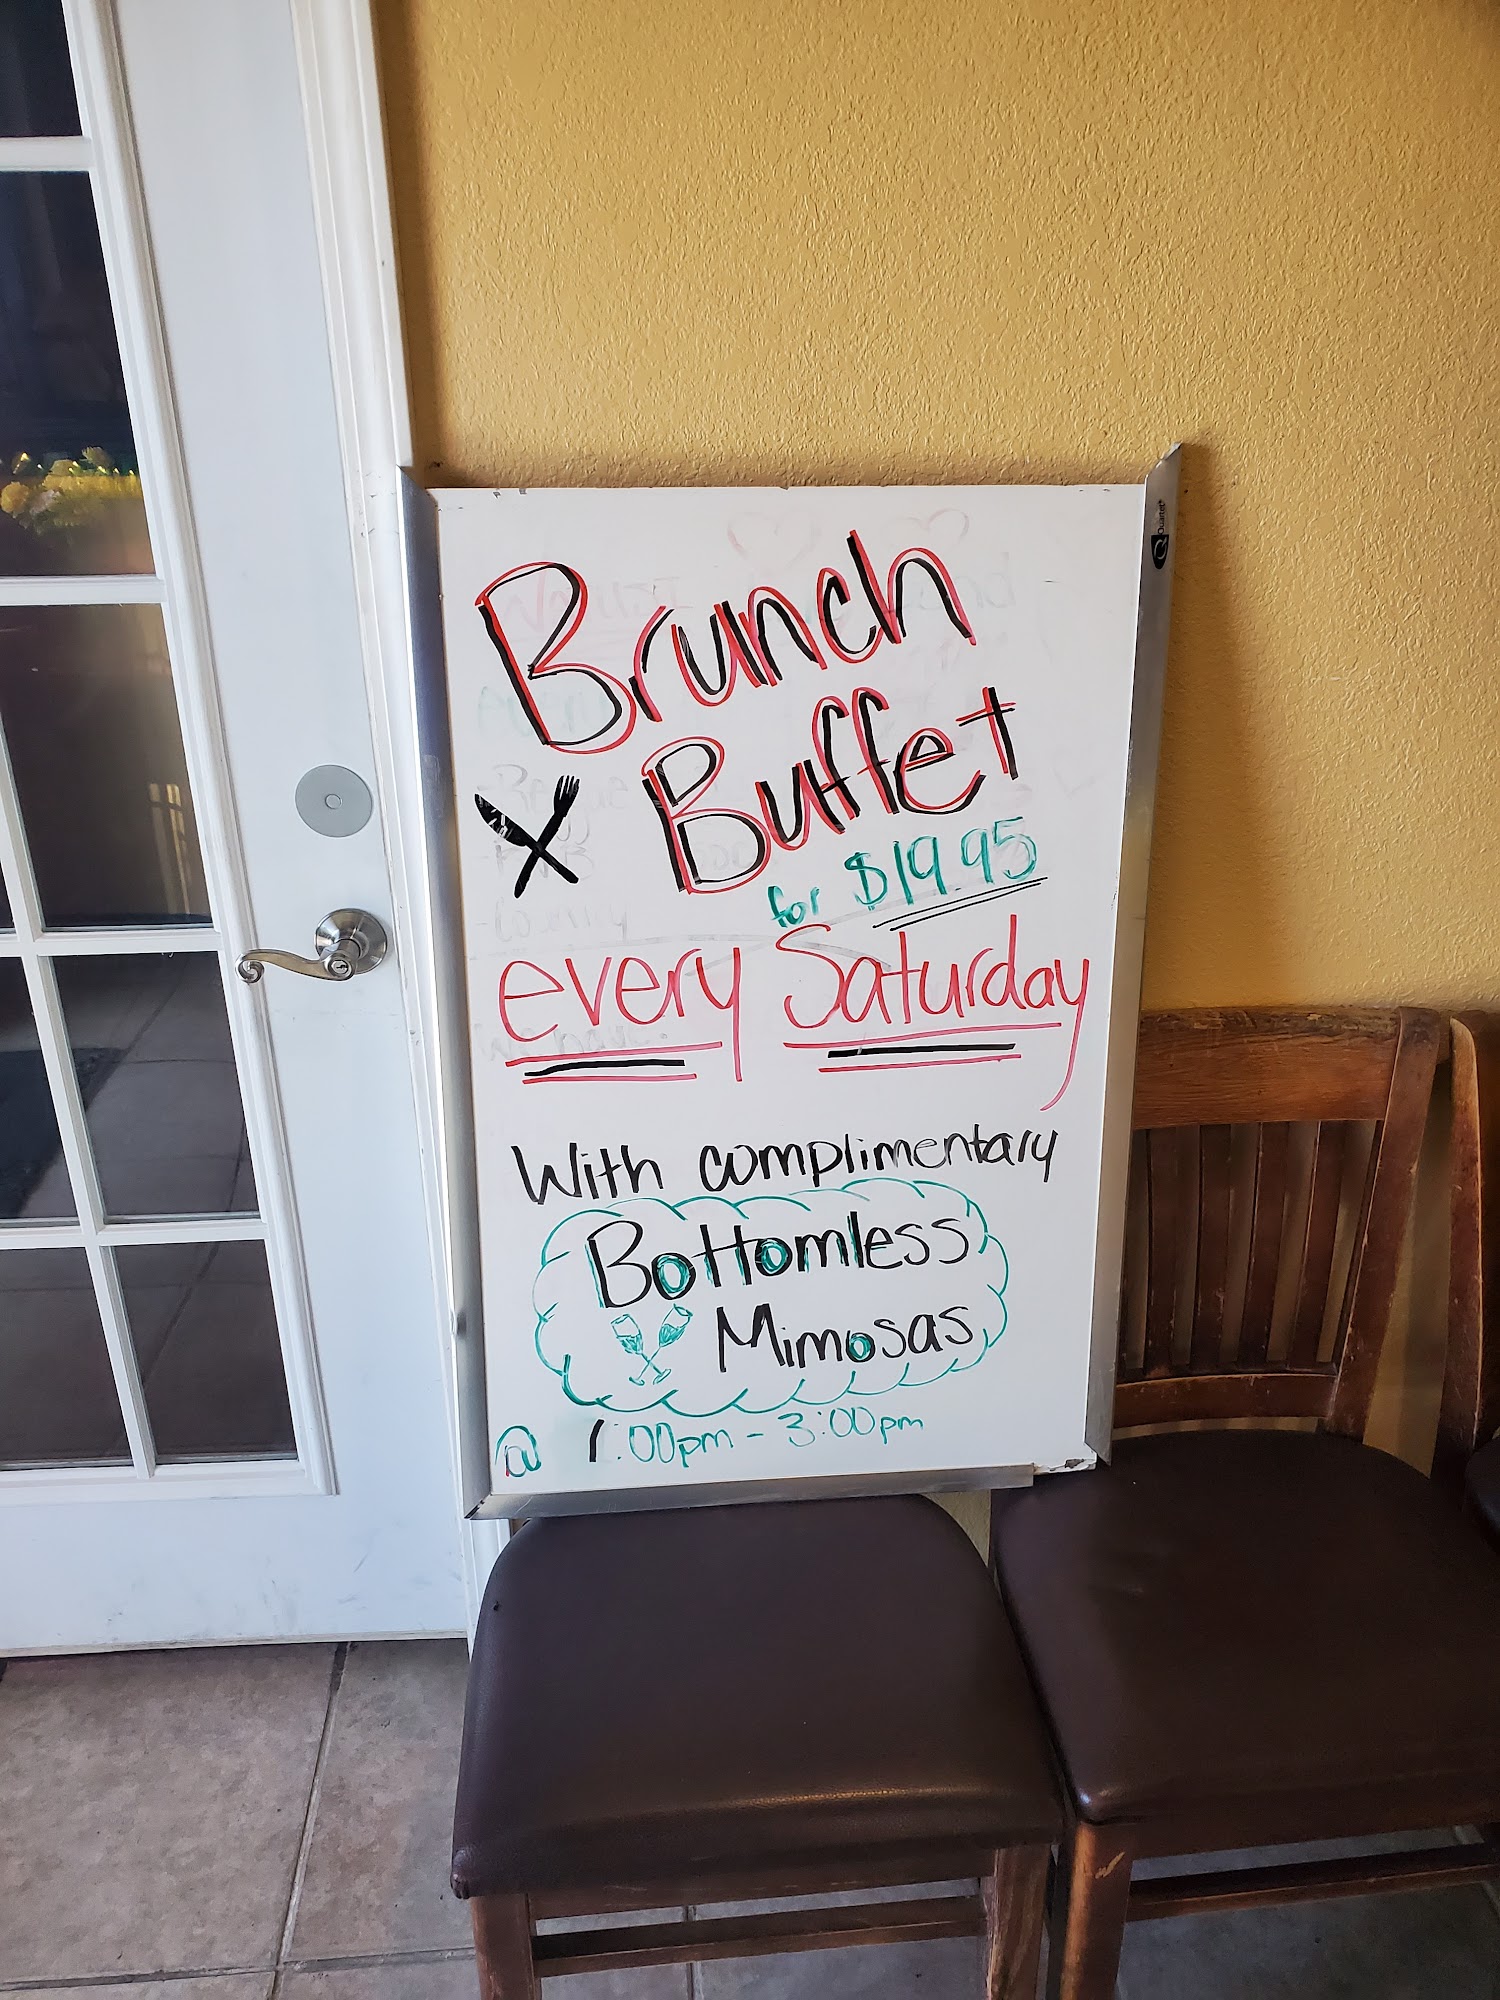 Quartet
Brunch
Buffet
for $19.95
every Saturday
With complimentary
Bottomless
Mimosas
@ 1:00pm - 3:00pm